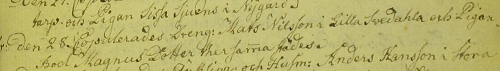 torp och Pigan Sissa Svens i Nygård
den 28. Copulerades Dreng: Mats Nilsson i Lilla Svedahla och Pigan
Boel Magnus Dotter ther sama städes.
och Husm: Anders Hansson i Stora